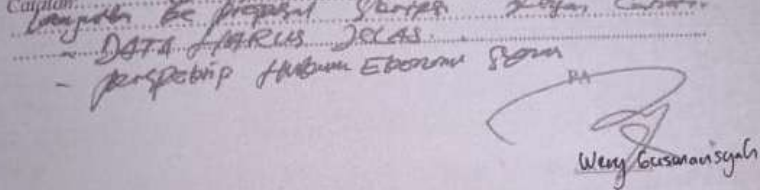 Catatan:
Lanjutkan ke proposal skripsi dengan catatan
- DATA HARUS JELAS.
- perspektip Hukum Ekonomi
PA
Wery Gusmansyah